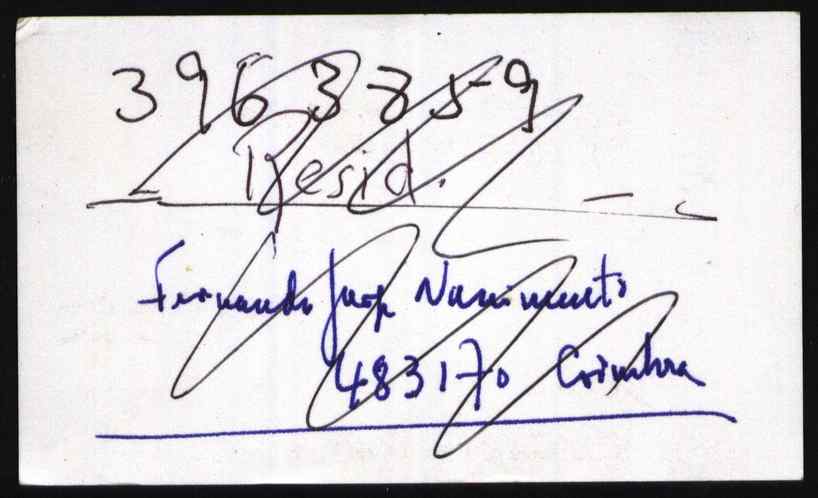 3963859
Resid.
Fernando Jorge Nascimento
483170 Coimbra